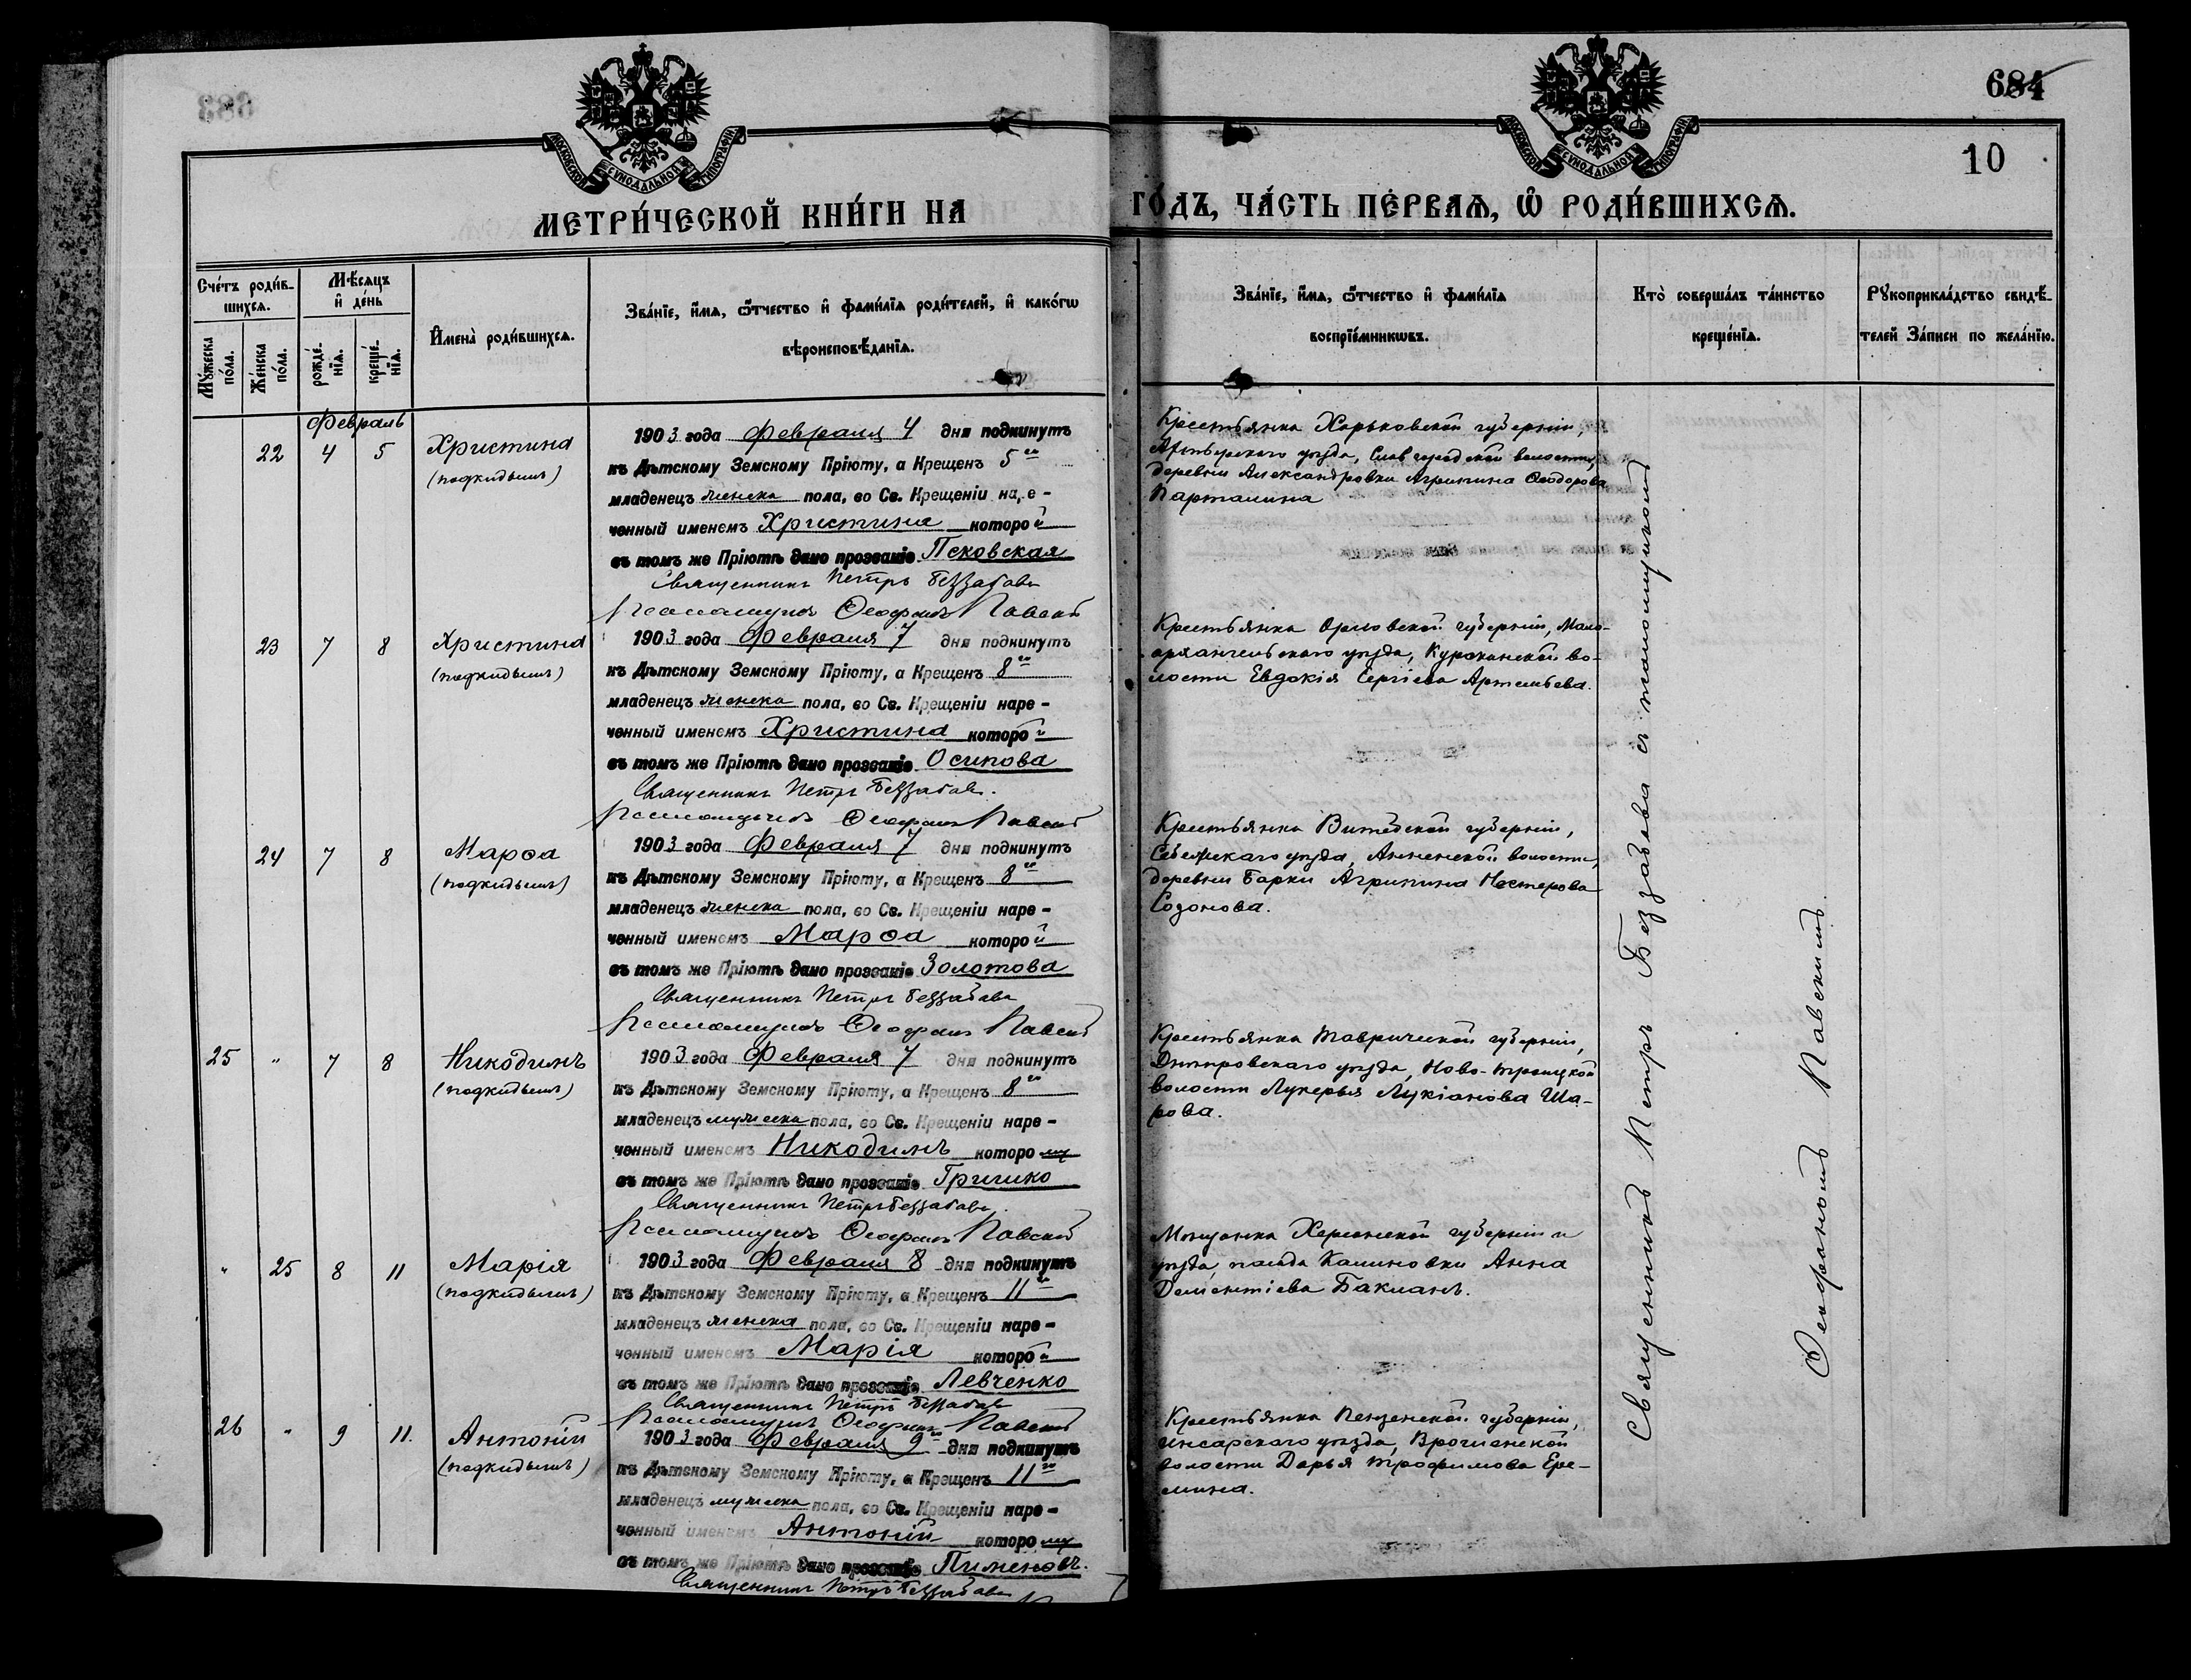 МОСКОВСКОЙ СУНОДАЛЬНОЙ ТИПОГРАФІИ
МОСКОВСКОЙ СУНОДАЛЬНОЙ ТИПОГРАФІИ
684
10
МЕТРИ́ЧЕСКОЙ КНИ́ГИ НА
ГО́ДЪ, ЧА́СТЬ ПЕ́РВАѦ, Ѡ҆ РОДИ́ВШИХСѦ.
Сче́тъ роди́в-
шихсѧ.
Мꙋ́жеска по́ла.
Же́нска по́ла.
Мѣ́сѧцъ
и҆ де́нь
рожде́-
нїѧ.
креще́-
нїѧ.
И҆мена̀ роди́вшихсѧ.
Зва́нїе, и҆́мѧ, ѻ҆́тчество и҆ фами́лїѧ роди́телей, и҆ како́гѡ
вѣроисповѣ́данїѧ.
Зва́нїе, и҆́мѧ, ѻ҆́тчество и҆ фами́лїѧ
воспрїе́мникѡвъ.
Кто̀ соверша́лъ та́инство
креще́нїѧ.
Рꙋкоприкла́дство свидѣ́-
телей За́писи по жела́нїю.
Февраль
22 4 5 Христина
(подкидышъ)
1903 года Февраля 4 дня подкинутъ
къ Дѣтскому Земскому Пріюту, а Крещенъ 5го
младенецъ женска пола, во Св. Крещеніи наре-
ченный именемъ Христина которой
въ томъ же Пріютѣ дано прозваніе Псковская
Священникъ Петръ Беззабава
Псаломщикъ Ѳеофанъ Павскій
Крестьянка Харьковской губерніи,
уѣзда, волости,
деревни Александровки Агрипина Ѳеодорова
Парталина
23 7 8 Христина
(подкидышъ)
1903 года Февраля 7 дня подкинутъ
къ Дѣтскому Земскому Пріюту, а Крещенъ 8го
младенецъ женска пола, во Св. Крещеніи наре-
ченный именемъ Христина которой
въ томъ же Пріютѣ дано прозваніе Осипова
Священникъ Петръ Беззабава.
Псаломщикъ Ѳеофанъ Павскій
Крестьянка Орловской губерніи, Мало-
архангельскаго уѣзда, Кураканской во-
лости Евдокія Сергіева Артемьева.
24 7 8 Марѳа
(подкидышъ)
1903 года Февраля 7 дня подкинутъ
къ Дѣтскому Земскому Пріюту, а Крещенъ 8го
младенецъ женска пола, во Св. Крещеніи наре-
ченный именемъ Марѳа которой
въ томъ же Пріютѣ дано прозваніе Золотова
Священникъ Петръ Беззабава
Псаломщикъ Ѳеофанъ Павскій
Крестьянка Витебской губерніи,
Себежскаго уѣзда, Анненской волости,
деревни Барки Агрипина Нестерова
Созонова.
25 " 7 8 Никодимъ
(подкидышъ)
1903 года Февраля 7 дня подкинутъ
къ Дѣтскому Земскому Пріюту, а Крещенъ 8го
младенецъ мужеска пола, во Св. Крещеніи наре-
ченный именемъ Никодимъ которому
въ томъ же Пріютѣ дано прозваніе Гришко
Священникъ Петръ Беззабава.
Псаломщикъ Ѳеофанъ Павскій
Крестьянка Таврической губерніи,
Днѣпровскаго уѣзда, Ново-Троицкой
волости Лукерья Лукіанова Ша-
рова.
" 25 8 11 Марія
(подкидышъ)
1903 года Февраля 8 дня подкинутъ
къ Дѣтскому Земскому Пріюту, а Крещенъ 11го
младенецъ женска пола, во Св. Крещеніи наре-
ченный именемъ Марія которой
въ томъ же Пріютѣ дано прозваніе Левченко
Священникъ Петръ Беззабава
Псаломщикъ Ѳеофанъ Павскій
Мѣщанка Херсонской губерніи и
уѣзда, посада Калиновки Анна
Дементіева Бакланъ.
26 " 9 11. Антоній
(подкидышъ)
1903 года Февраля 9 дня подкинутъ
къ Дѣтскому Земскому Пріюту, а Крещенъ 11го
младенецъ мужеска пола, во Св. Крещеніи наре-
ченный именемъ Антоній которому
въ томъ же Пріютѣ дано прозваніе Пименовъ.
Священникъ Петръ Беззабава
Крестьянка Пензенской губерніи,
Инсарскаго уѣзда, волости Дарья Трофимова Ере-
мина.
Священникъ Петръ Беззабава съ псаломщикомъ
Ѳеофаномъ Павскимъ.